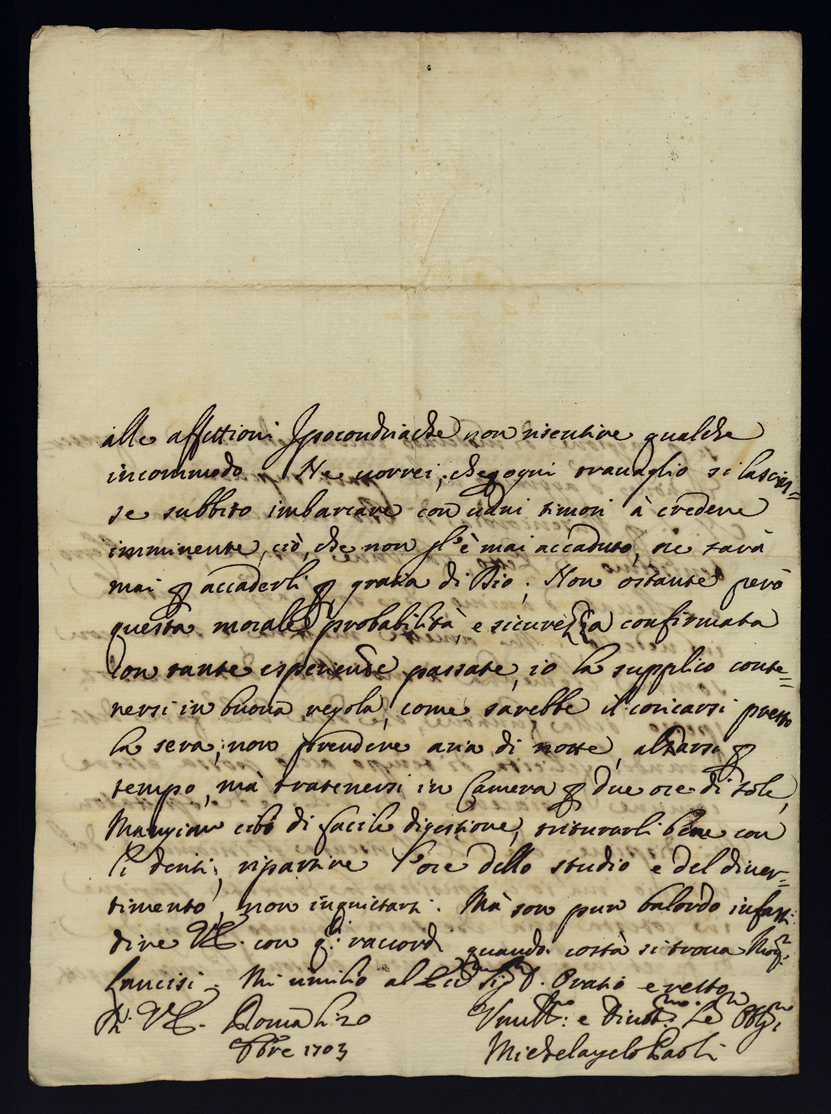 alle affettioni Ipocondriache non risentire qualche
incommodo. Ne vorrei, che ogni travaglio si lascias=
se subbito imbarcare con vani timori à credere
imminente, ciò, che non gl'è mai accaduto, ne sarà
mai p accaderli p gratia di Dio; Non ostante però
questa morale probabilità, e sicurezza confirmata
con tante esperienze passate, io la supplico conte=
nersi in buona regola, come sarebbe il coricarsi presto
la sera, non prendere aria di notte, alzarsi p
tempo, mà tratenersi in Camera p due ore di sole,
Mangiar cibi di facile digestione, triturarli bene con
li denti, ripartire l'ore dello studio e del diver=
timento, non inquietarsi. Mà son pur balordo infasti
dire VS. con qti raccordi quando costà si trova Monsr
Lancisi. Mi umilio al Sigr D. Oratio e resto
Di VS. Roma li 20 Umilmo: e Devotmo: Se Obligmo
9bre 1703 Michelangelo Paoli